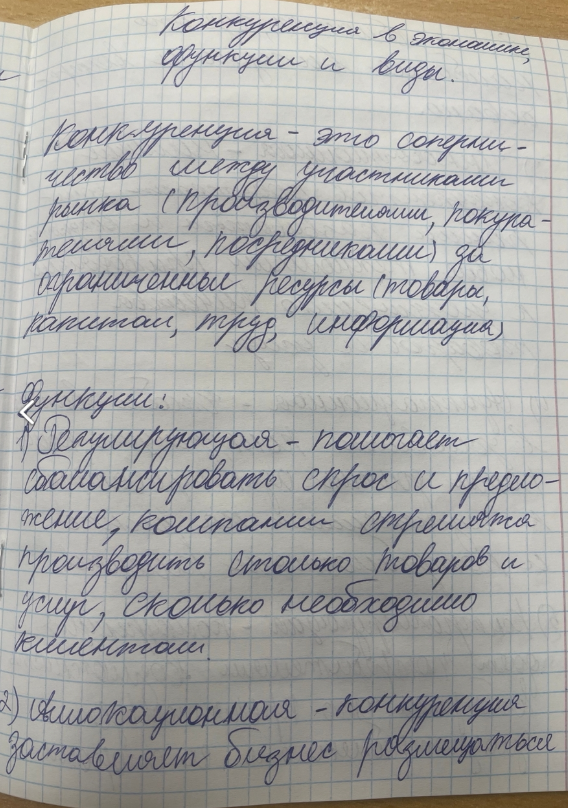 Конкуренция в экономике,
функции и виды.
Конкуренция - это соперни-
чество между участниками
рынка (производителями, покупа-
телями, посредниками) за
ограниченные ресурсы (товары,
капитал, труд, информация)
Функции:
1) Регулирующая - помогает
сбалансировать спрос и предло-
жение, компании стремятся
производить столько товаров и
услуг, сколько необходимо
клиентам.
2) Аллокационная - конкуренция
заставляет бизнес размещаться